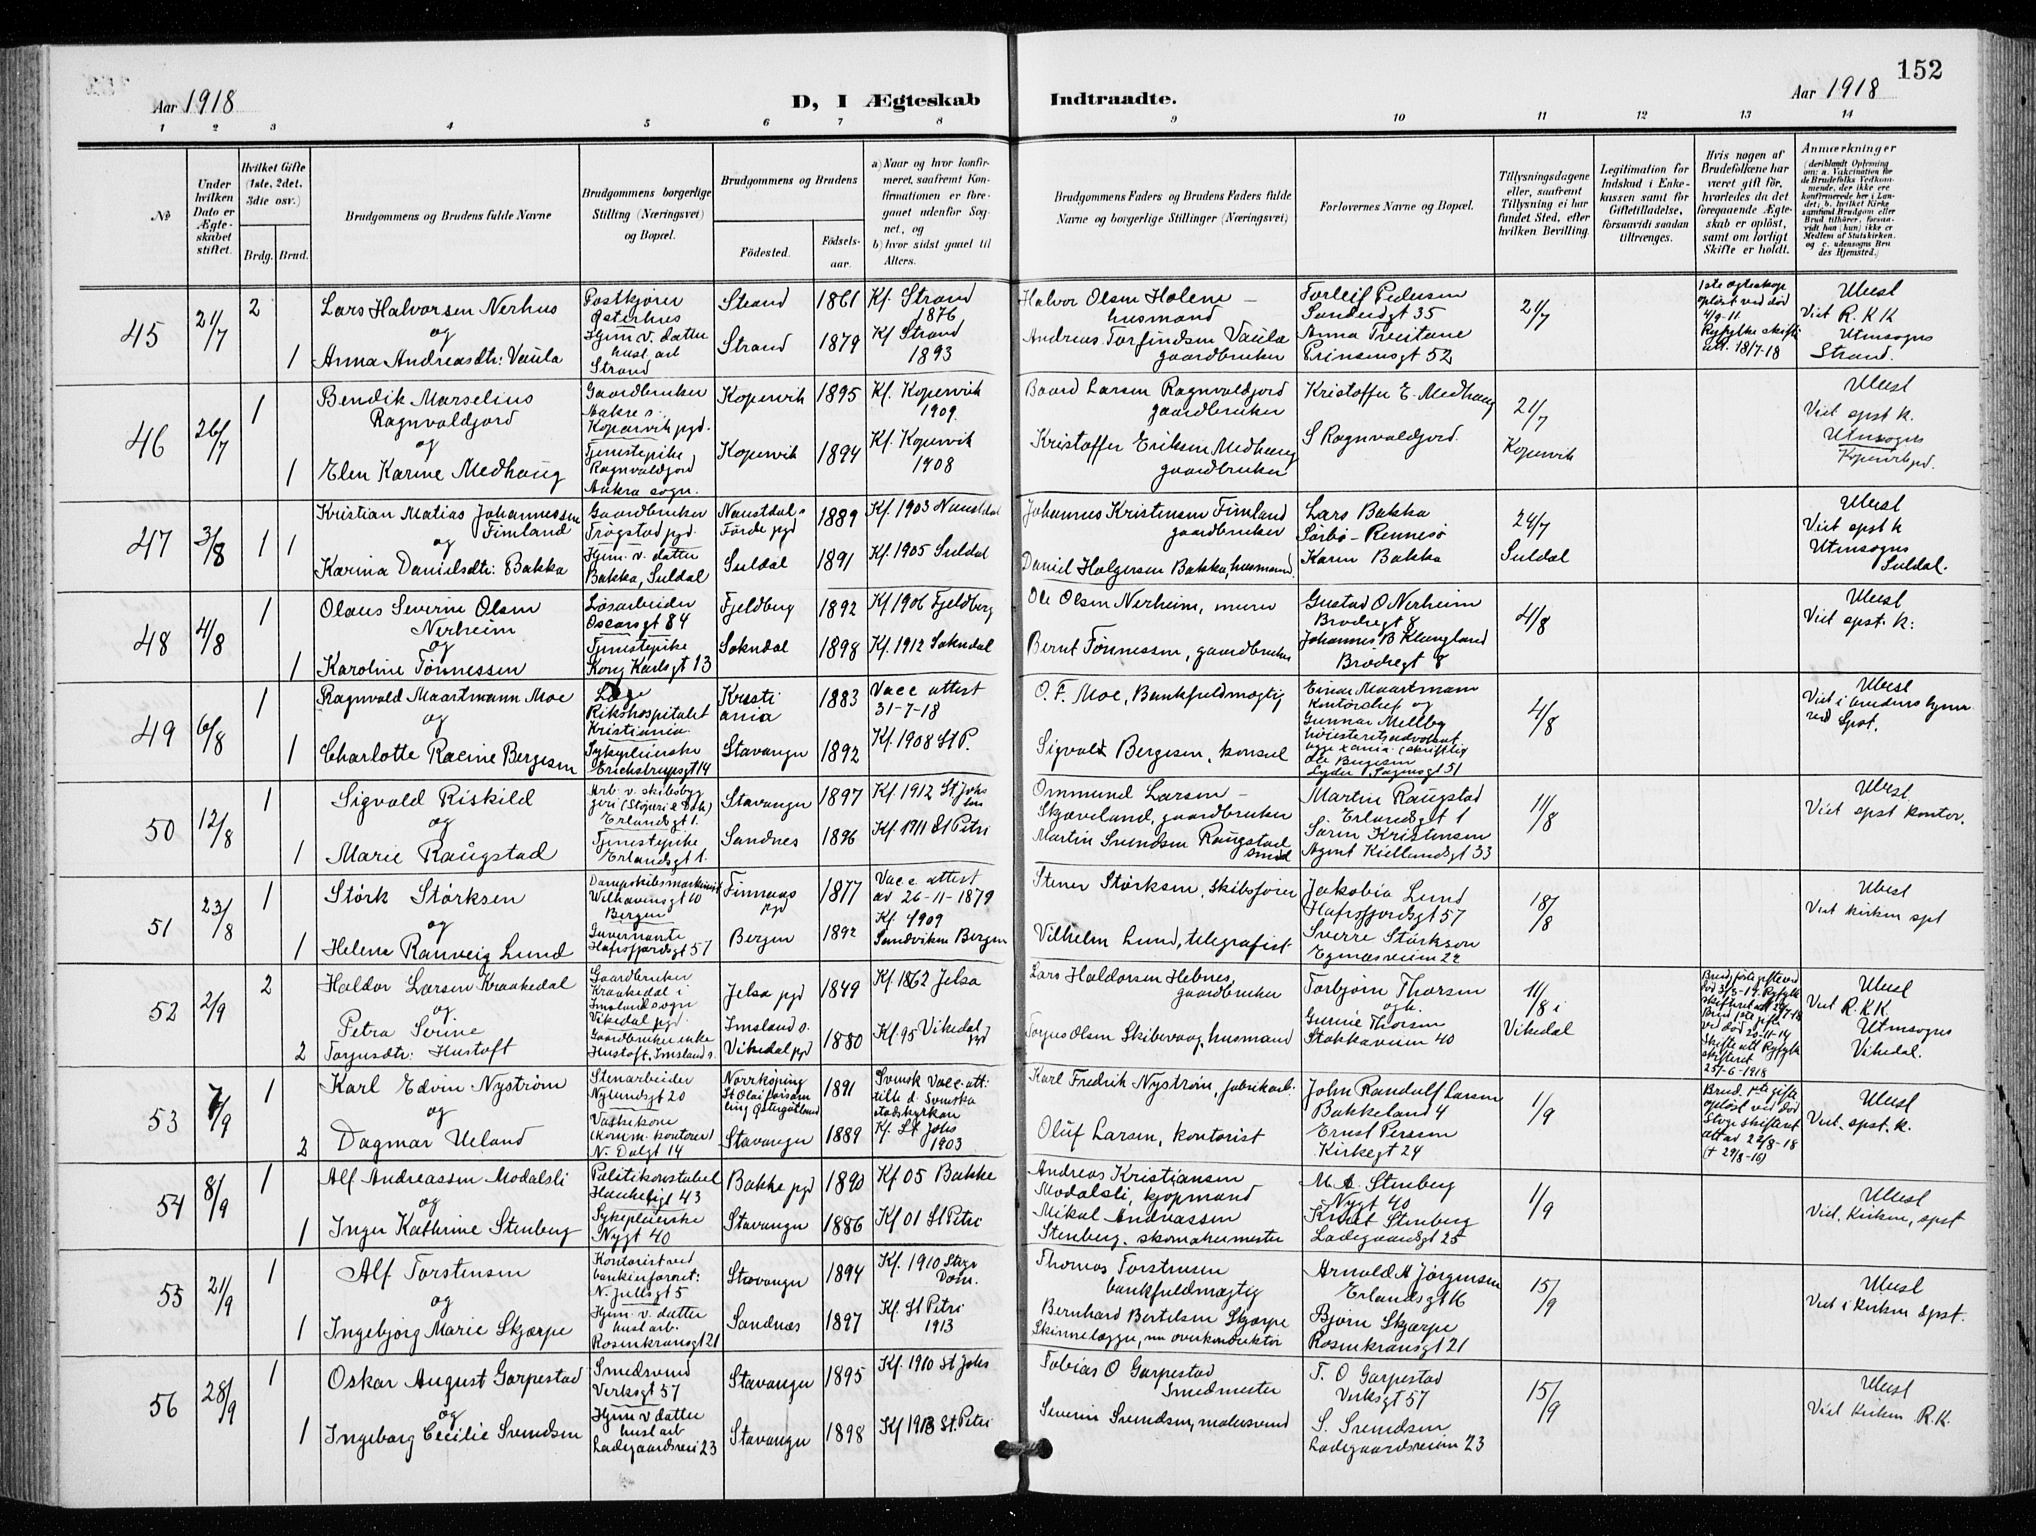 152
Aar 1918
D, I Ægteskab
Indtraadte.
Aar 1918
1 2 3 4 5 6 7 8 9 10 11 12 13 14
No
Under hvilken Dato er Ægteskabet stiftet.
Hvilket Gifte (1ste, 2det, 3die osv.)
Brdg. Brud.
Brudgommens og Brudens fulde Navne
Brudgommens borgerlige Stilling (Næringsvei) og Bopæl.
Brudgommens og Brudens
Fødested.
Fødsels-aar.
a) Naar og hvor konfirmeret, saafremt Konfirmationen er foregaaet udenfor Sognet, og
b) hvor sidst gaaet til Alters.
Brudgommens Faders og Brudens Faders fulde Navne og borgerlige Stillinger (Næringsvei)
Forlovernes Navne og Bopæl.
Tillysningsdagene eller, saafremt Tillysning ei har fundet Sted, efter hvilken Bevilling.
Legitimation for Indskud i Enkekassen samt for Giftetilladelse, forsaavidt saadan tiltrænges.
Hvis nogen af Brudefolkene har været gift før, hvorledes da det foregaaende Ægteskab er opløst, samt om lovligt Skifte er holdt.
Anmerkninger
45
21/7
2
Lars Halvorsen Nerhus
og
1 Anna Andreasdtr: Vaula
Postkjører
Østerhus
Hjem. v. datter
husl. arb
Strand
Strand 1861 Kf. Strand 1876
Strand 1879 Kf Strand 1893
Halvor Olsen Holene - husmand
Andreas Torfindsen Vaula gaardbruker
Torleif Pedersen
Sandeidgt 35
Anna Treitane
Prinsensgt 52
21/7
1ste egteskap opløst ved død 4/9-11.
Ryfylke skifte att. 18/7-18
Ubest
Viet R.K.K
Utensogns
Strand.
46
26/7
1
Bendik Marselius
Ragnvaldjord
og
1 Elen Karine Medhaug
Gaardbruker
Aakre s.
Kopervik pgd.
Tjenestepike
Ragnvaldjord
Aakra sogn.
Kopervik 1895 Kf. Kopervik 1909.
Kopervik 1894 Kf. Kopervik 1908
Baard Larsen Ragnvaldjord gaardbruker
Kristoffer Eriksen Medhaug gaardbruker
Kristoffer E. Medhaug
S Ragnvaldjord.
21/7
Kopervik
Ubest
Viet spst k.
Utensogns
Kopervik pgd.
47
3/8
1 1
Kristian Matias Johannessen
Fimland
og
Karina Danielsdtr: Bakka
Gaardbruker
Trøgstad pgd.
Hjem. v. datter
Bakka, Suldal
Naustdal s
Førde pgd 1889 Kf. 1903 Naustdal
Suldal 1891 Kf. 1905 Suldal
Johannes Kristensen Fimland gaardbruker
Daniel Holgersen Bakka, husmand.
Lars Bakka
Sørbø - Rennesø
Karen Bakka
24/7
Suldal
Ubest
Viet spst k
Utensogns
Suldal.
48
4/8
1
Olaus Severin Olsen
Nerheim
og
1 Karoline Tønnessen
Løsarbeider
Oscarsgt 84
Tjenestepike
Kong Karlsgt 13
Fjeldberg 1892 Kf 1906 Fjeldberg
Sokndal 1898 Kf. 1912 Sokndal
Ole Olsen Nerheim, murer
Bernt Tønnessen, gaardbruker
Gustad O Nerheim
Brodregt 8
Johannes B Klungland
Brodregt 8
4/8
Ubest
Viet spst. k:
49
6/8
1
Ragnvald Maartmann Moe
og
1 Charlotte Racine Bergesen
Læge
Rikshospitalet
Kristiania.
Sykepleierske
Erichstrupsgt 14
Kristiania 1883 Vacc attest 31-7-18
Stavanger 1892 Kf. 1908 St P.
O. F. Moe, Bankfuldmægtig
Sigvald Bergesen, konsul
Einar Maartmann
kontorchef og
Gunnar Mellby
høiesteretsadvokat
Ole Bergesen
4/8
Ubest
Viet i brudens hjem
ved Spst.
50
12/8
1
Sigvald Riskild
og
1 Marie Raugstad
Arb v. skibsbyg
geri (Støperi & Dok)
Erlandsgt 1.
Tjenestepike
Erlandsgt 1.
Stavanger 1897 Kf 1912 St Johs
Sandnes 1896 Kf. 1911 St Petri
Ommund Larsen -
Skjæveland, gaardbruker
Martin Svendsen Raugstad
smed
Martin Raugstad
Erlandsgt 1
Søren Kristensen
Agent Kiellandsgt 33
11/8
Ubest
Viet spst kontor.
51
23/8
1
Størk Størksen
og
1 Helene Ranveig Lund
Dampskibsmaskinist
Bergen
Guvernante
Hafrsfjordsgt 57
Finnaas pgd 1877 Vacc. attest av 26-11-1879
Bergen 1892 Kf. 1909 Sandviken Bergen
Stener Størksen, skibsfører
Vilhelm Lund, telegrafist
Jakobia Lund
Hafrsfjordsgt 57
Sverre Størksen
Egenæsveien 22
18/8
Ubest
Viet kirken spst
52
2/9
2
Haldor Larsen Kraakedal
og
Petra Serine
2 Torgusdtr: Hustoft
Gaardbruker
Kraakedal i
Imsland sogn
Vikedal pgd.
Gaardbruker enke
Hustoft, Imsland s.
Jelsa pgd 1849 Kf. 1862 Jelsa
Imsland s.
Vikedal pgd 1880 Kf 95 Vikedal pgd
Lars Haldorsen Hebnes, gaardbruker
Torgus Olsen Skibevaag, husmand
Torbjørn Thorsen
og
Gurine Thorsen
Stokkaveien 40
11/8 i
Vikedal
Skifte att Ryfylk
skifteret
25/-6-1918
Ubest
Viet R.K.K.
Utensogns
Vikedal.
53
7/9
1
Karl Edvin Nystrøm
og
2 Dagmar Ueland
Stenarbeider
Nylundsgt 20
Vaskekone
(Komm. kontorer)
N. Dalgt 14
Norrköping
St Olai församling Østergötland 1891 Svensk Vacc. att:
Stavanger 1889 Kf. St Johs 1903
Karl Fredrik Nystrøm, fabrikarb.
Oluf Larsen, kontorist
John Randulf Larsen
Bakkeland 4
Ernst Persson
Kirkegt 24
1/9
Brud. 1ste gifte
opløst ved død
Stvgr skifteret
att av 22/8-18
(+ 29/8-16)
Ubest
Viet. spst. k.
54
8/9
1
Alf Andreassen Modalsli
og
1 Inger Kathrine Stenberg
Politikonstabel
Haukeligt 43
Sykepleierske
Nygt 40
Bakke pgd 1890 Kf 05 Bakke
Stavanger 1886 Kf 01 St Petri
Andreas Kristiansen
Modalsli, kjøpmand
Mikal Andreassen
Stenberg, skomakermester
M. A. Stenberg
Nygt 40
Knut Stenberg
Ladegaardsgt 25
1/9
Ubest
Viet. kirken, spst
55
21/9
1
Alf Torstensen
og
1 Ingebjørg Marie Skjærpe
Kontorist ved
N. Juelsgt 5
Hjem. v. datter
husl arb.
Rosenkransgt 21
Stavanger 1894 Kf. 1910 Stvgr Dom.
Sandnes 1897 Kf. St Petri 1913
Thomas Torstensen
bankfuldmægtig
Bernhard Bertelsen Skjærpe
Skinnelægger, nu overkonduktør
Arnold A Jørgensen
Erlandsgt 16
Bjørn Skjærpe
Rosenkransgt 21
15/9
Ubest
Viet i kirken spst.
56
28/9
1
Oskar August Garpestad
og
1 Ingeborg Cecilie Svendsen
Smedsvend
Verksgt 57
Hjem v datter
husl arb
Ladegaardsvei 23
Stavanger 1895 Kf. 1910 St Johs
Stavanger 1898 Kf 1913 St. Petri
Tobias O Garpestad
Smedmester
Severin Svendsen, malersvend
T. O Garpestad
Verksgt 57
S. Svendsen
Ladegaardsveien 23
15/9
Ubest
Viet kirken R.K.